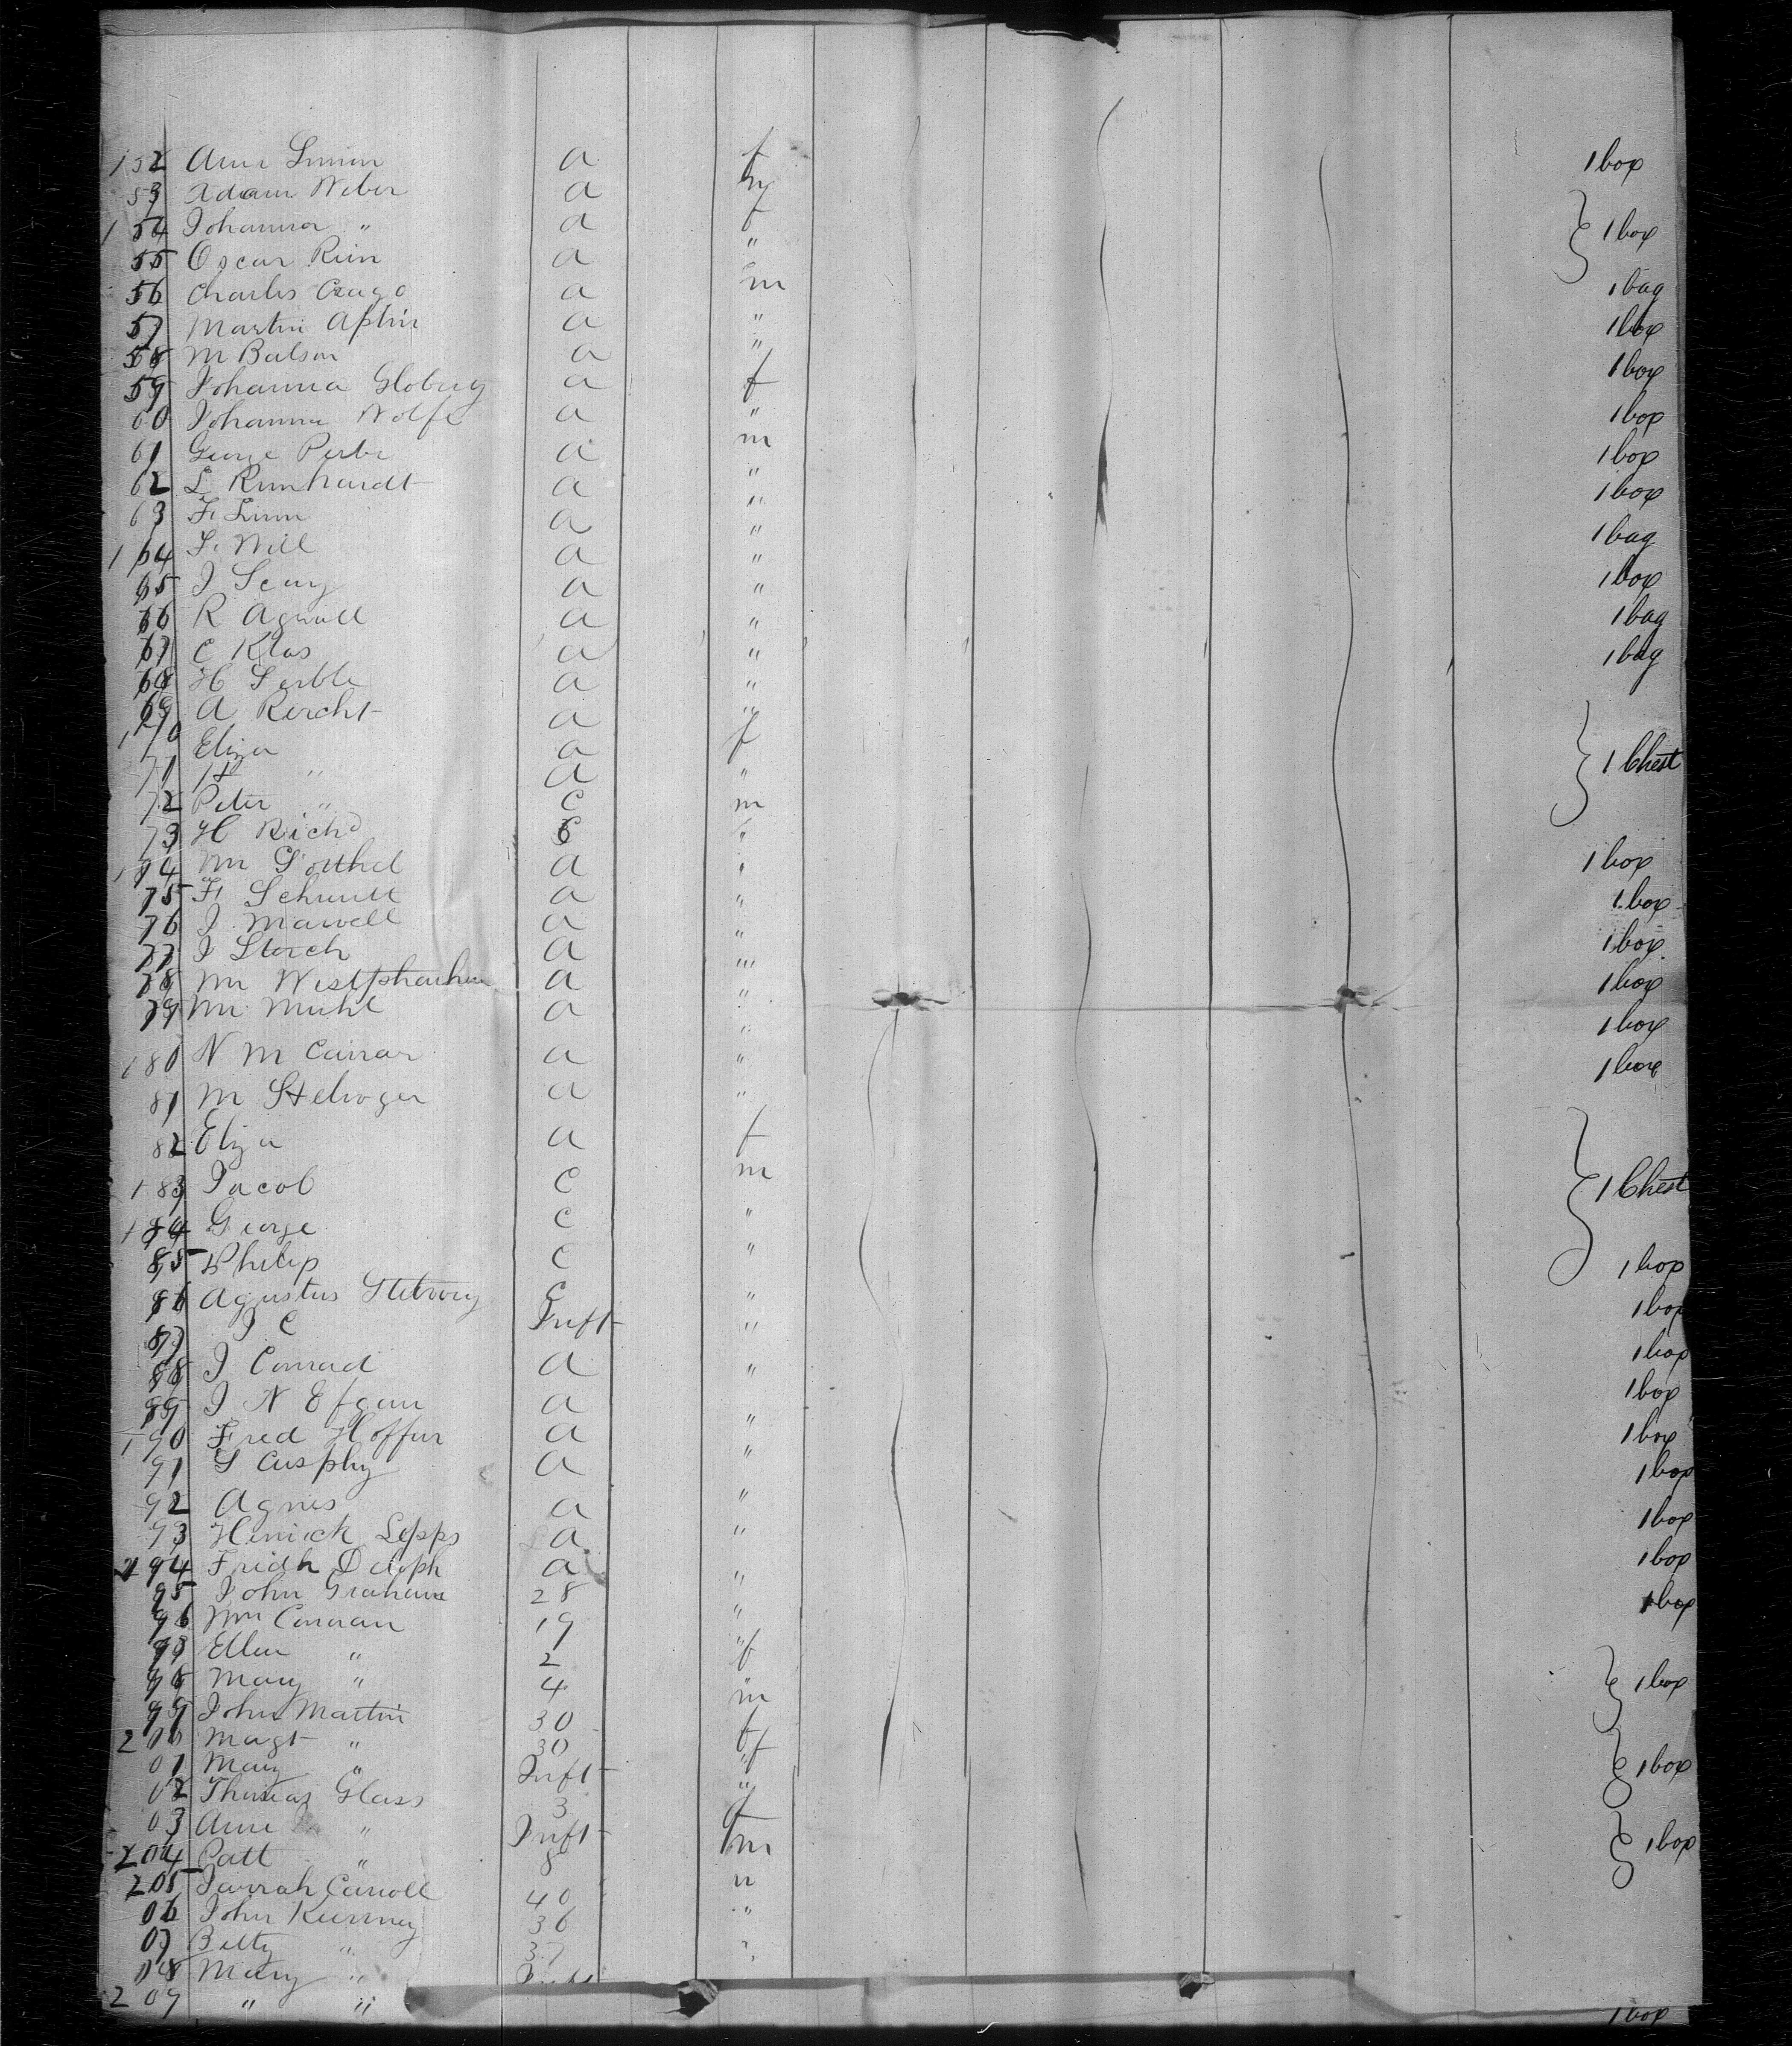 152 Ann Simon a f 1 box
53 Adam Weber a m
154 Johanna " a f 1 box
55 Oscar Rim a "
56 Charles Crago a m 1 bag
57 Martin a " 1 box
58 M Balson a " 1 box
59 Johanna Globug a f
60 Johanna Wolfe a " 1 box
61 George a m 1 box
62 L Rimhardt a " 1 box
63 F. Linn a "
164 F. Will a " 1 bag
65 J a " 1 box
66 R a " 1 bag
67 C Klas a " 1 bag
68 H Serble a "
69 A Rercht a "
170 Eliza a f 1 Chest
71 H " a "
72 Peter " C m
73 H Richd C "
174 Mr Gotthel a " 1 box
75 F. Schmitt a " 1 box
76 J. Maxwell a "
77 J Storch a " 1 box
78 Mr a " 1 box
79 Mr. Muhl a " 1 box
180 N M Carrar a " 1 box
81 M Stelwoger a "
82 Eliza a f
183 Jacob C m 1 Chest
184 George C "
85 Philip C " 1 box
86 Agustus C " 1 box
87 J C Inft "
88 J Conrad a " 1 box
89 J N Efgan a " 1 box
190 Fred Hoffur a " 1 box
91 S Cusphy a " 1 box
92 Agnes a " 1 box
93 Henrick Lepps a "
194 Fridh a " 1 box
95 John Graham 28 " 1 box
96 Wm Conran 19 "
97 Ellen " 2 f
98 Mary " 4 " 1 box
99 John Martin 30 m
200 Magt " 30 f
01 Mary " Inft " 1 box
02 Thomas Glass 3 "
03 Ann " Inft f
204 Patt " 8 m 1 box
205 Carroll 40 "
06 John Kerrney 36 "
07 Betty " 37 "
08 Mary " Inft
209 " " 1 box